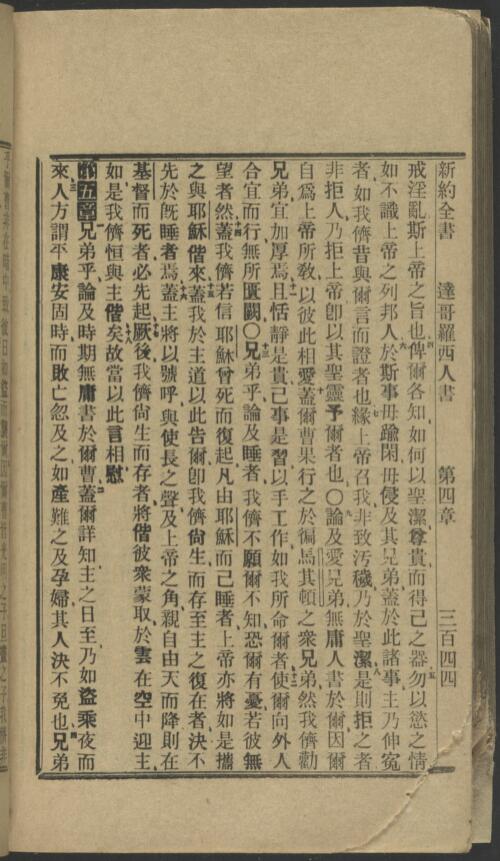 新約全書 達哥羅西人書 第四章 三百四四
戒淫亂斯上帝之旨也俾爾各知如何以聖潔尊貴而得己之器勿以慾之情
如不識上帝之列邦人於斯事毋踰閑毋侵及其兄弟蓋於此諸事主乃伸寃
者如我儕昔與爾言而證者也緣上帝召我非致汚穢乃於聖潔是則拒之者
非拒人乃拒上帝卽以其聖靈予爾者也〇論及愛兄弟無庸人書於爾因爾
自爲上帝所敎以彼此相愛蓋爾曹果行之於徧馬其頓之衆兄弟然我儕勸
兄弟宜加厚焉且恬靜是貴己事是習以手工作如我所命爾者使爾向外人
合宜而行無所匱闕〇兄弟乎論及睡者我儕不願爾不知恐爾有憂若彼無
望者然蓋我儕若信耶穌曾死而復起凡由耶穌而已睡者上帝亦將如是攜
之與耶穌偕來蓋我於主道以此吿爾卽我儕尙生而存至主之復在者決不
先於旣睡者焉蓋主將以號呼與使長之聲及上帝之角親自由天而降則在
基督而死者必先起厥後我儕尙生而存者將偕彼衆蒙取於雲在空中迎主
如是我儕恒與主偕矣故當以此言相慰
第五章兄弟乎論及時期無庸書於爾曹蓋爾詳知主之日至乃如盜乘夜而
來人方謂平康安固時而敗亡忽及之如產難之及孕婦其人決不免也兄弟